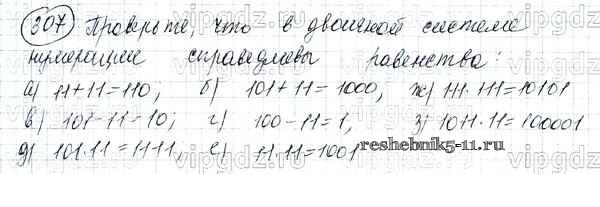 307 Проверьте, что в двоичной системе
нумерации справедливы равенства:
а) 11+11=110, б) 101+11=1000, ж) 111·111=10101
в) 101-11=10; г) 100-11=1, з) 1011·11=100001
д) 101·11=1111, е) 11·11=1001
reshebnik5-11.ru
vipgdz.ru